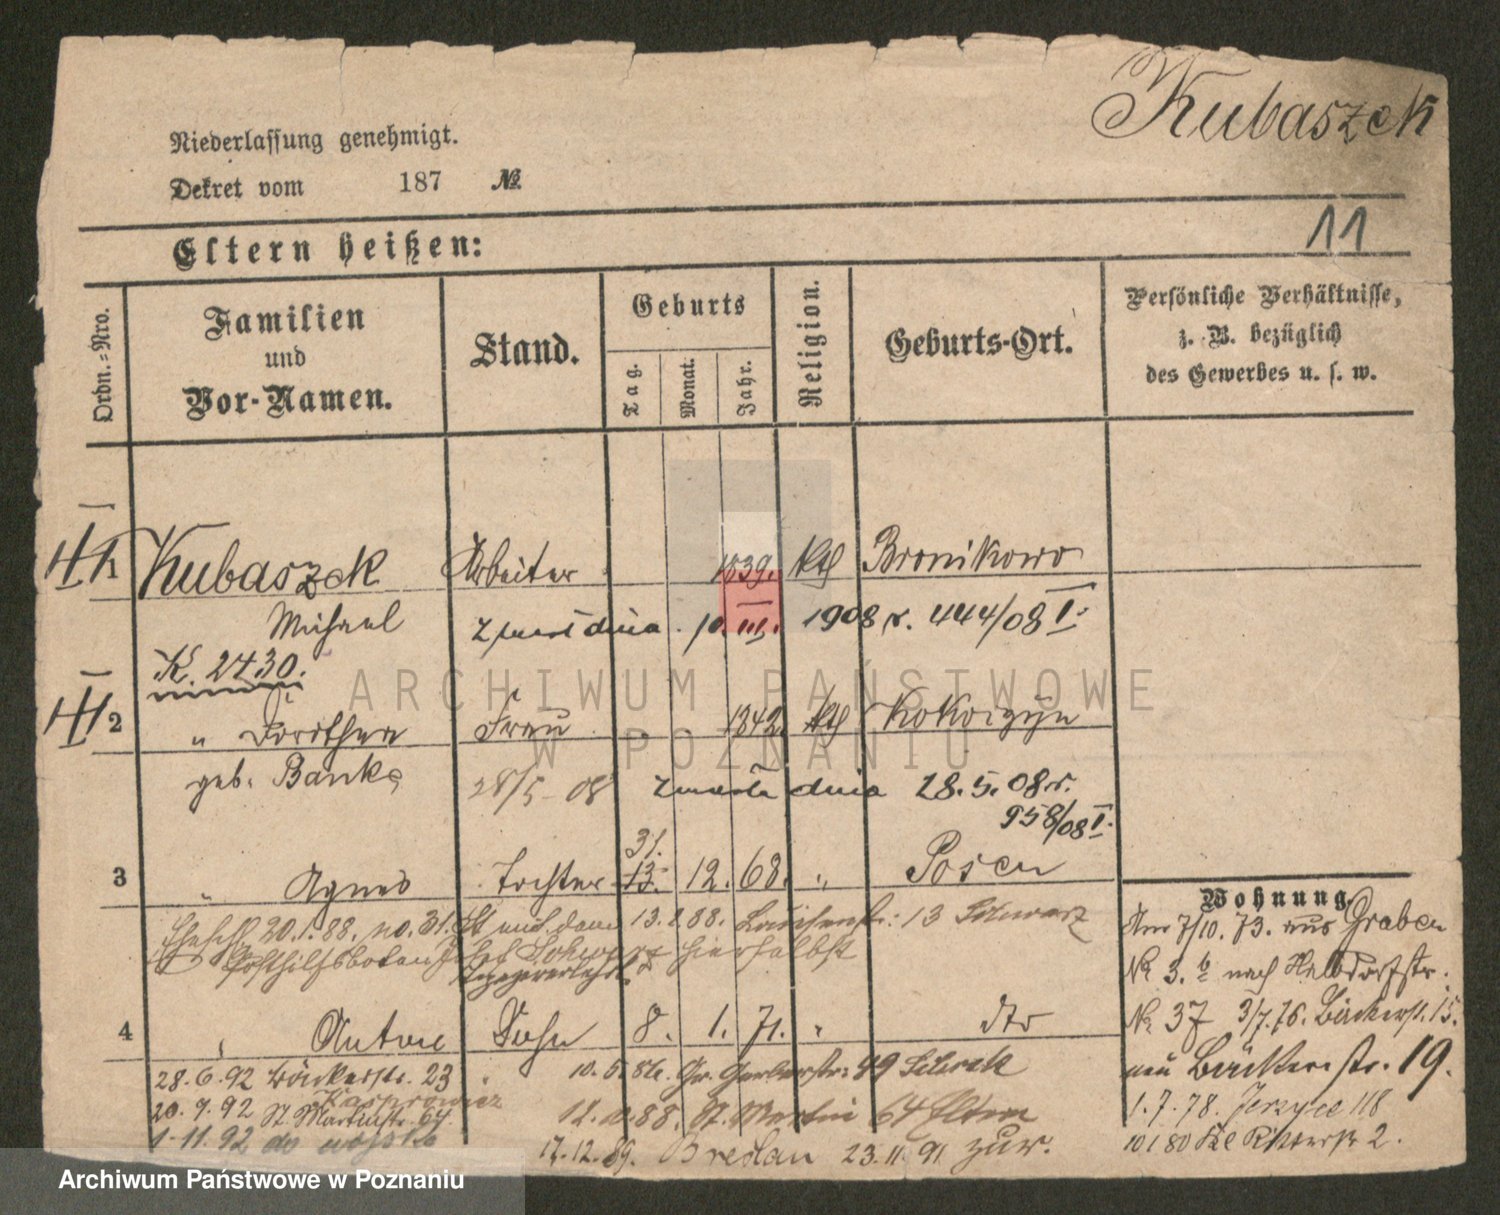 Kubaszek
Niederlassung genehmigt.
Dekret vom 187 №
11
Eltern heißen:
Ordn.=Nro.
Familien
und
Vor-Namen.
Stand.
Geburts
Tag.
Monat.
Jahr.
Religion.
Geburts-Ort.
Persönliche Verhältnisse,
z. B. bezüglich
des Gewerbes u. s. w.
1 Kubaszek Arbeiter 1839. kth Bronikowo
Michael zmarł dnia 10. III. 1908 r. 444/08 I.
K. 2430.
2 " Dorothea Frau 1842 kth Kokorzyn
geb. Banke 28/5 - 08 zmarła dnia 28.5.08 r.
958/08 I.
31.
3 " Agnes Tochter 13. 12. 68. " Posen
Wohnung.
20.1.88. no. 31. mit dem 13. 88. 13 Schwarz
Posthilfsboten Schwarz hierselbst
Am 7/10. 73. aus Graben
№ 3. b nach Halbdorfstr.
4 " Sohn 8. 1. 71. " dto
№ 37 3/7. 76. Bäckerst. 15.
28.6.92 Bäckerstr. 23 10.5.86. Gr. Gerberstr. 49
neu Bäckerstr. 19.
Kasprowicz
20.9.92 St. Martinstr. 64. 88. St. Martin 64 Eltern
1.7.78. Jerzyce 118
1-11.92 do wojska 17.12.89. Breslau 23.11.91 zur.
2.
ARCHIWUM PAŃSTWOWE
W POZNANIU
Archiwum Państwowe w Poznaniu